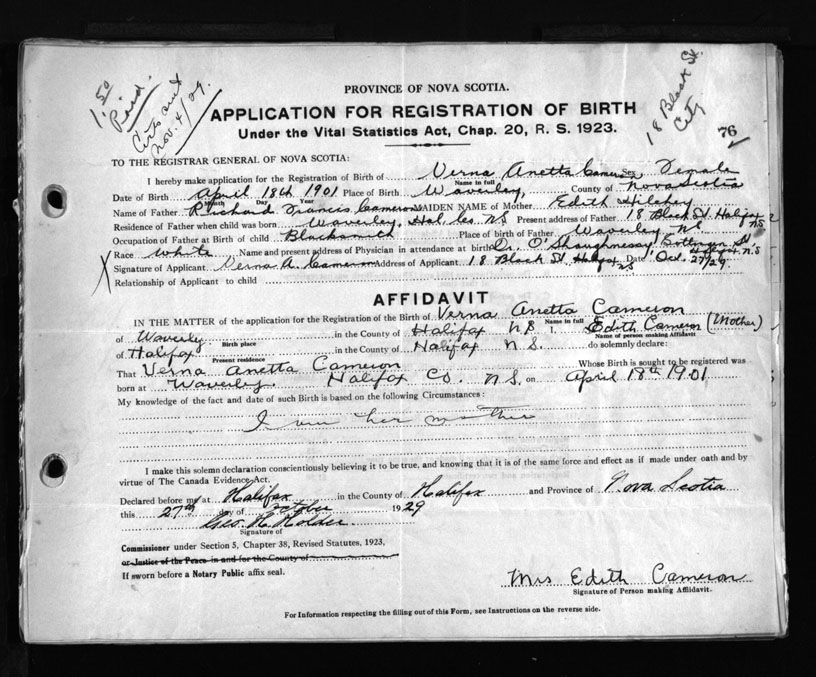 1.50
Paid.
Certs and
Nov. 4/29.
18 Black St.
City
76
PROVINCE OF NOVA SCOTIA.
APPLICATION FOR REGISTRATION OF BIRTH
Under the Vital Statistics Act, Chap. 20, R. S. 1923.
TO THE REGISTRAR GENERAL OF NOVA SCOTIA:
I hereby make application for the Registration of Birth of Verna Anetta Cameron Sex Female
Name in full
Date of Birth April 18th 1901 Place of Birth Waverley, County of Nova Scotia
Month Day Year
Name of Father Richard Francis Cameron MAIDEN NAME of Mother Edith Hilchey
Residence of Father when child was born Waverley, Hal. Co. NS Present address of Father 18 Black St Halifax NS
Occupation of Father at Birth of child Blacksmith Place of birth of Father Waverley NS
Race White Name and present address of Physician in attendance at birth Dr. O'Shaughnessy St Halifax N.S
Signature of Applicant Verna A. Cameron Address of Applicant 18 Black St. Halifax NS Date Oct. 27/29.
Relationship of Applicant to child
AFFIDAVIT
IN THE MATTER of the application for the Registration of the Birth of Verna Anetta Cameron
Name in full
of Waverly in the County of Halifax N S. I, Edith Cameron (Mother)
Birth place Name of person making Affidavit
of Halifax in the County of Halifax N S. do solemnly declare:
Present residence
That Verna Anetta Cameron Whose Birth is sought to be registered was
born at Waverley. Halifax Co. N S. on April 18th 1901
My knowledge of the fact and date of such Birth is based on the following Circumstances:
I am her mother
I make this solemn declaration conscientiously believing it to be true, and knowing that it is of the same force and effect as if made under oath and by
virtue of The Canada Evidence Act.
Declared before me at Halifax in the County of Halifax and Province of Nova Scotia
this 27th day of October 1929
Geo. H. Holder.
Signature of
Commissioner under Section 5, Chapter 38, Revised Statutes, 1923,
or Justice of the Peace in and for the County of
If sworn before a Notary Public affix seal.
Mrs Edith Cameron
Signature of Person making Affidavit.
For Information respecting the filling out of this Form, see Instructions on the reverse side.